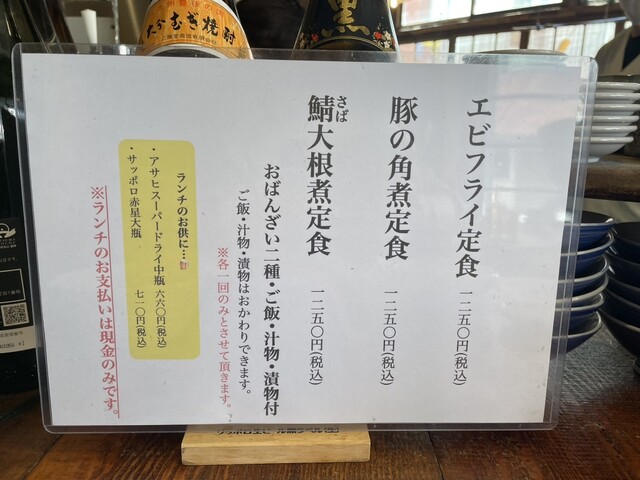 大分むぎ焼酎
黒
エビフライ定食 一二五〇円(税込)
豚の角煮定食 一二五〇円(税込)
さば
鯖大根煮定食 一二五〇円(税込)
おばんざい二種・ご飯・汁物・漬物付
ご飯・汁物・漬物はおかわりできます。
※各一回のみとさせて頂きます。
ランチのお供に…
・アサヒスーパードライ中瓶 六六〇円(税込)
・サッポロ赤星大瓶 七一〇円(税込)
※ランチのお支払いは現金のみです。